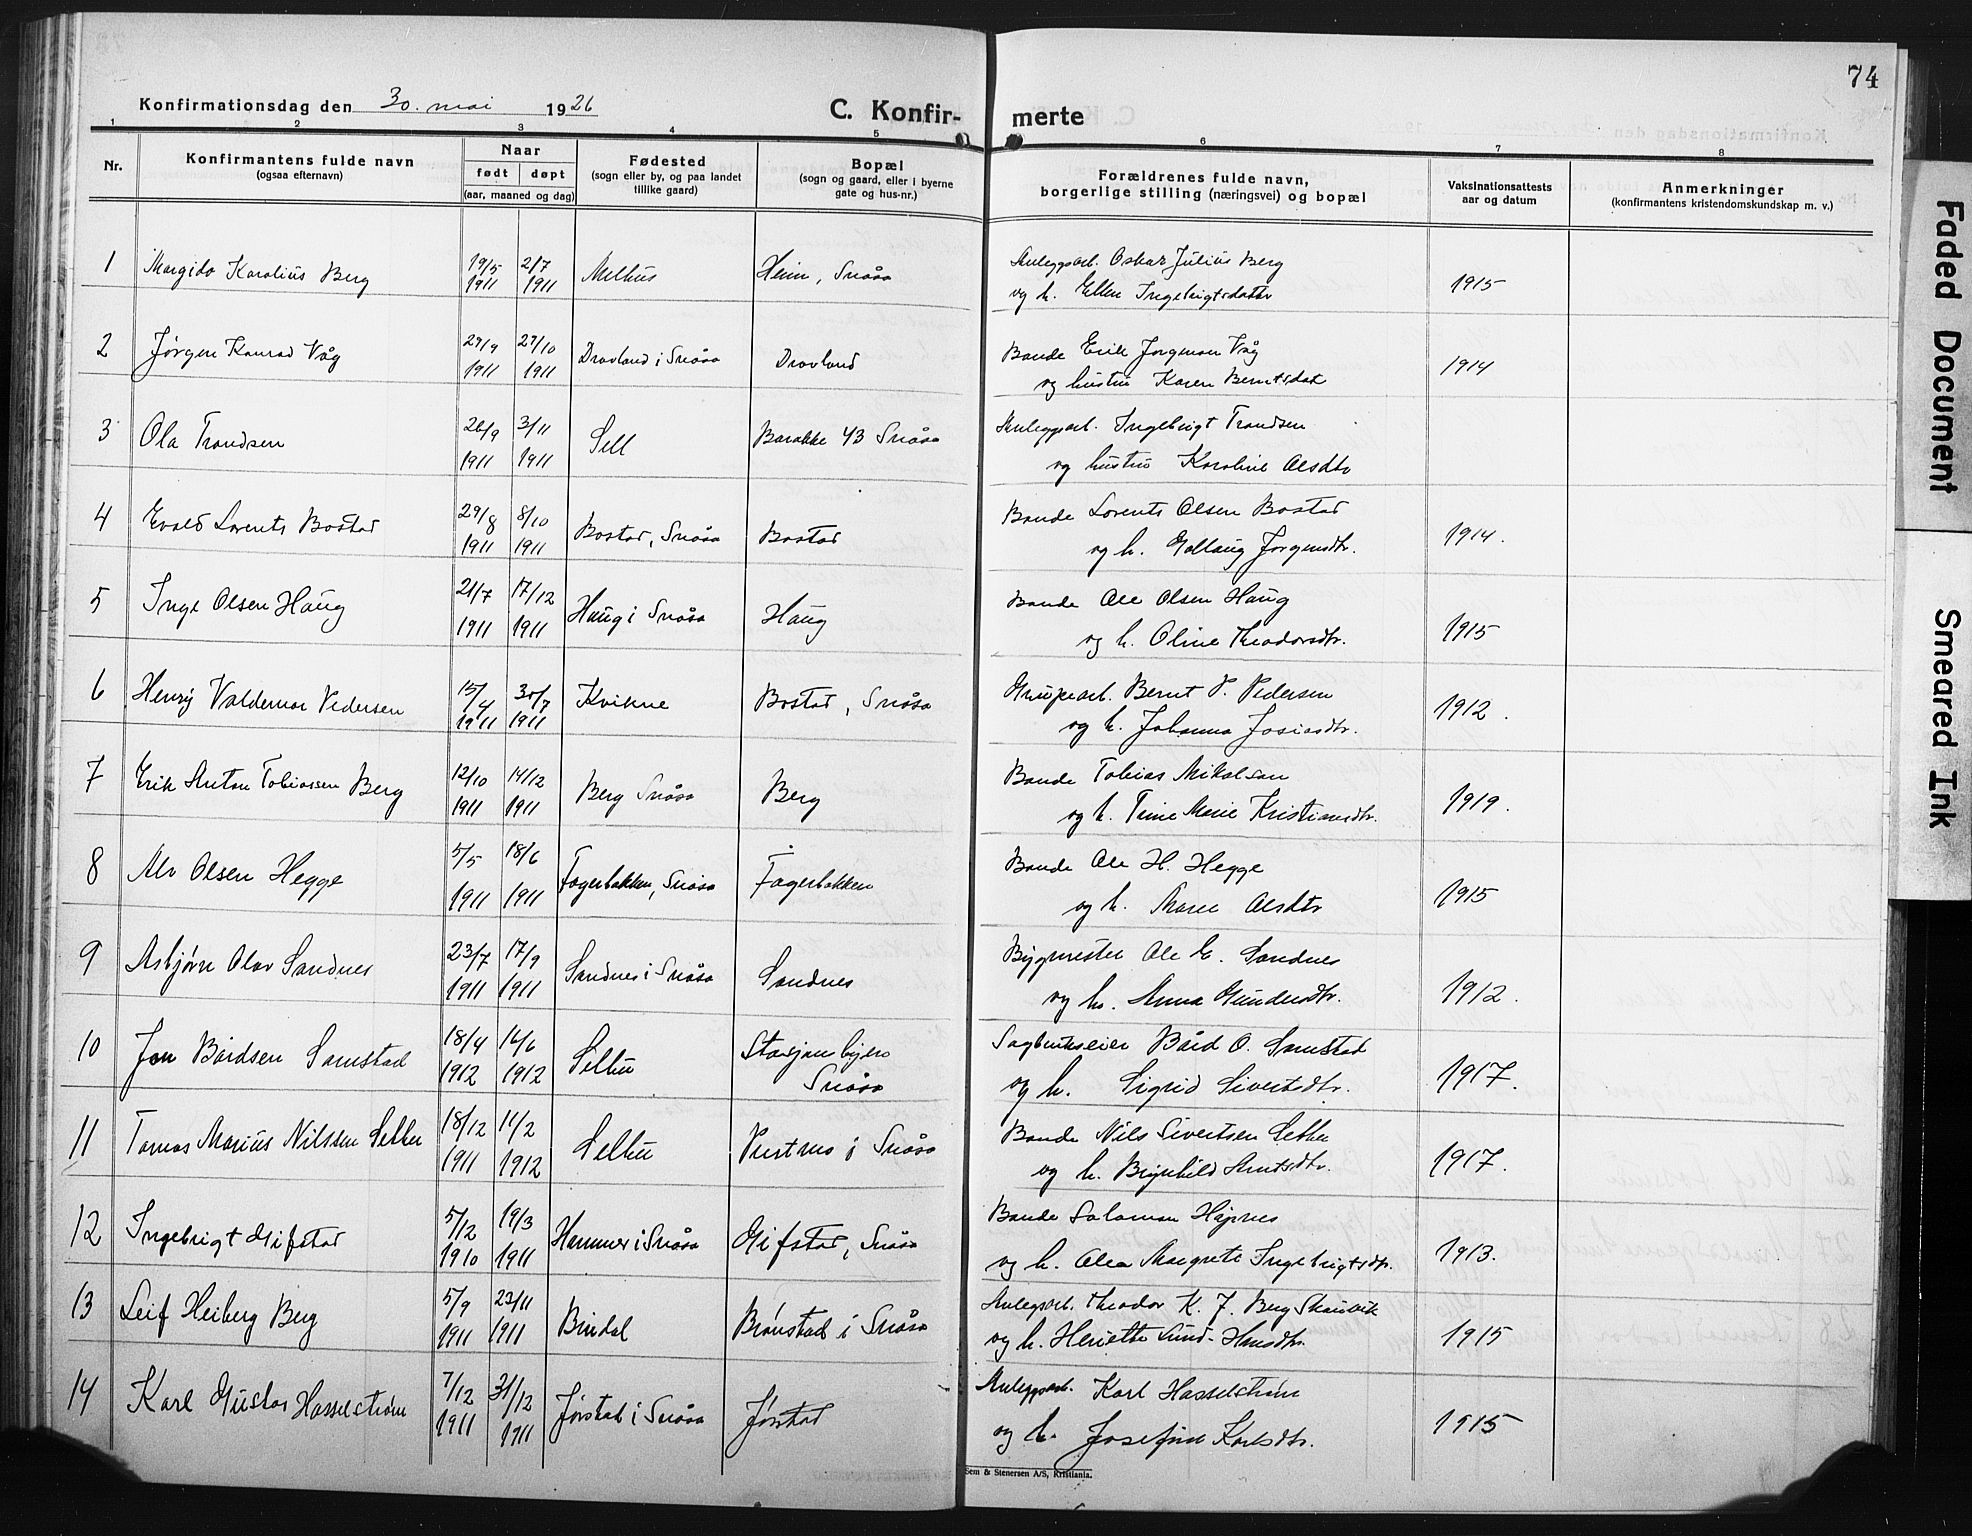 74
Konfirmationsdag den 30. mai 1926
C. Konfir- merte
1 2 3 4 5 6 7 8
Nr.
Konfirmantens fulde navn
(ogsaa efternavn)
Naar
født døpt
(aar, maaned og dag)
Fødested
(sogn eller by, og paa landet
tillike gaard)
Bopæl
(sogn og gaard, eller i byerne
gate og hus-nr.)
Forældrenes fulde navn,
borgerlige stilling (næringsvei) og bopæl
Vaksinationsattests
aar og datum
Anmerkninger
(konfirmantens kristendomskundskap m. v.)
1 Margido Karolius Berg 19/5 2/7 Melhus Heim, Snåsa Anleggsarb. Oskar Julius Berg
1911 1911 og h. Ellen Ingebrigtsdatter 1915
2 Jørgen Konrad Våg 29/9 29/10 Dravland i Snåsa Dravland Bonde Erik Jørgensen Våg
1911 1911 og hustru Karen Berntsdat 1914
3 Ola Trondsen 26/9 3/11 Sell Barakke 43 Snåsa Anleggsarb. Ingebrigt Trondsen
1911 1911 og hustru Karoline Olsdtr
4 Evald Lorents Bostad 29/8 8/10 Bostad, Snåsa Bostad Bonde Lorents Olsen Bostad
1911 1911 og h. Gollaug Jørgensdtr. 1914.
5 Inge Olsen Haug 21/7 17/12 Haug i Snåsa Haug Bonde Ole Olsen Haug
1911 1911 og h. Oline Theodorsdtr. 1915
6 Henry Valdemar Pedersen 15/4 30/7 Kvikne Bostad, Snåsa Grubearb. Bernt P. Pedersen
1911 1911 og h. Johanna Josiasdtr. 1912.
7 Erik Anton Tobiassen Berg 12/10 14/12 Berg Snåsa Berg Bonde Tobias Mikalsen
1911 1911 og h. Trine Marie Kristiansdtr. 1919.
8 Alv Olsen Hegge 5/5 18/6 Fagerbakken, Snåsa Fagerbakken Bonde Ole H. Hegge
1911 1911 og h. Maren Olsdtr 1915
9 Asbjørn Olav Sandnes 23/7 17/9 Sandnes i Snåsa Sandnes Bygmester Ole E. Sandnes
1911 1911 og h. Anna Gundersdtr. 1912.
10 Jon Bårdsen Samstad 18/4 16/6 Selbu Stasjonsbyen Sagbrukseier Bård O. Samstad
1912 1912 Snåsa og h. Sigrid Sivertsdtr. 1917.
11 Tomas Marius Nilssen Selbu 18/12 14/2 Selbu i Snåsa Bonde Nils Sivertsen Selbu
1911 1912 og h. Brynhild Arntsdtr. 1917.
12 Ingebrigt Gifstad 5/12 19/3 Hammer i Snåsa Gifstad, Snåsa Bonde Salamon
1910 1911 og h. Olea Margrete Ingebrigtsdtr. 1913.
13 Leif Heiberg Berg 5/9 23/11 Bindal Brønstad i Snåsa Anlegsarb. Theodor K. J. Berg Skausvik
1911 1911 og h. Henriette Lund-Hansdtr. 1915
14 Karl Gustav Hasselstrøm 7/12 31/12 Jørstad i Snåsa Jørstad Anleggsarb. Karl Hasselstrøm
1911 1911 og h. Josefine Karlsdtr. 1915
Sem & Stenersen A/S, Kristiania.
Faded Document
Smeared Ink